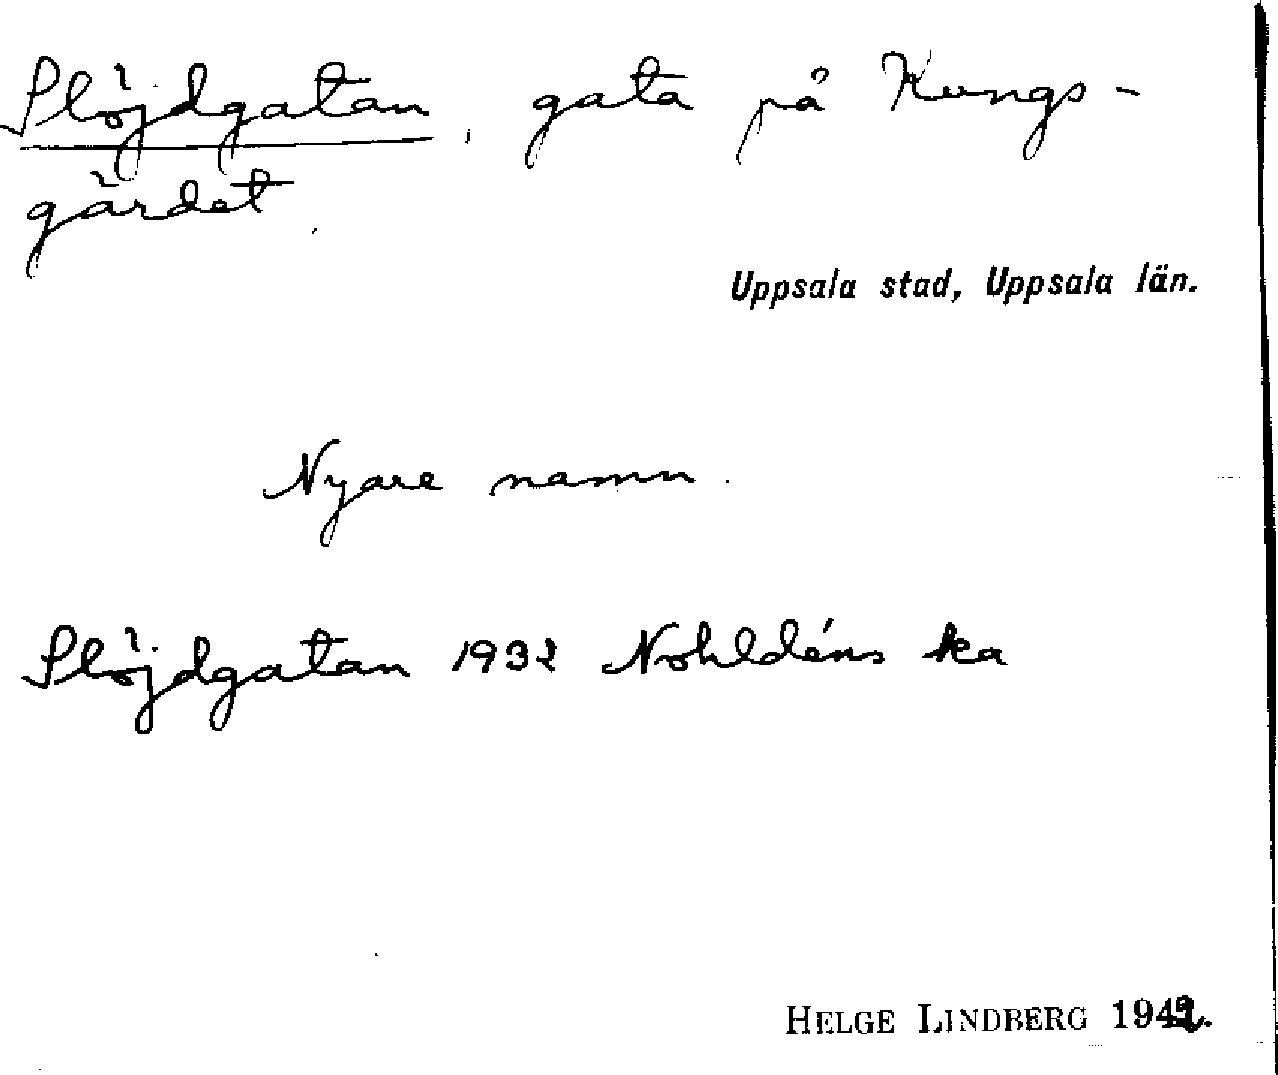 Slöjdgatan, gata på Kungs-
gärdet.
Uppsala stad, Uppsala län.
Nyare namn.
Slöjdgatan 1932 Nohldéns ka
HELGE LINDBERG 1942.